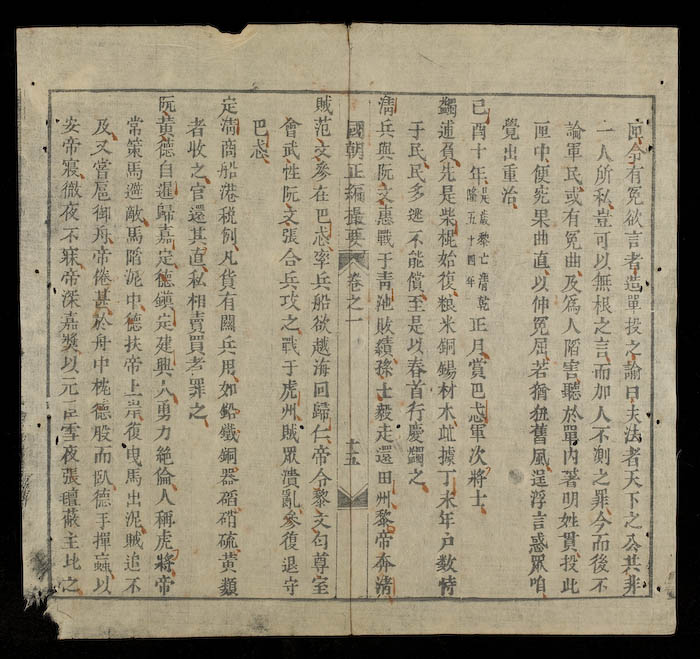 匣令有冤欲言者造單投之諭曰夫法者天下之公共非
一人所私豈可以無根之言而加人不測之罪今而後不
論軍民或有冤曲及爲人陷害聽於單內著明姓貫投此
匣中便究果曲直以伸冤屈若猶狃舊風逞浮言惑眾咱
覺出重治
己酉十年是歲黎亡清乾隆五十四年正月賞巴忒軍次將士
蠲逋負先是柴棍始復粮米銅錫材木竝據丁未年戸數特
于民民多逃不能償至是以春首行慶蠲之
清兵與阮文惠戰于青池敗績孫士毅走還田州黎帝奔清
國朝正編撮要 卷之一 十五
賊范文參在巴忒率兵船欲越海回歸仁帝令黎文勻尊室
會武性阮文張合兵攻之戰于虎州賊眾潰亂參復退守
巴忒
定清商船港税例凡貨有關兵用如鉛鐵銅器硝硫黃類
者收之官還其直私相賣買者罪之
阮黃德自暹歸嘉定德鎮定建興人勇力絶倫人稱虎將帝
常策馬避敵馬陷泥中德扶帝上岸復曳馬出泥賊追不
及又嘗扈御舟帝倦甚於舟中枕德股而臥德手揮蟁以
安帝寢徹夜不寐帝深嘉獎以元臣雪夜張氊蔽主比之